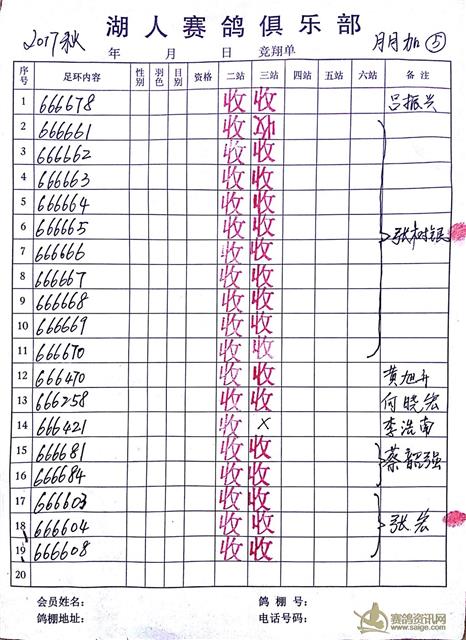 湖人赛鸽俱乐部
2017秋 年 月 日 竞翔单 月月加⑤
序号 足环内容 性别 羽色 目别 资格 二站 三站 四站 五站 六站 备注
1 666678 收 收 吕振兴
2 666661 收
3 666662 收 收
4 666663 收 收
5 666664 收 收
6 666665 收 收 张树银
7 666666 收 收
8 666667 收 收
9 666668 收 收
10 666669 收 收
11 666670 收 收
12 666470 收 收 黄旭升
13 666258 收 收 何晓宏
14 666421 收 × 李浩南
15 666681 收 收 蔡韶强
16 666684 收 收
17 666603 收 收
18 666604 收 收 张宏
19 666608 收 收
20
会员姓名: 鸽棚号:
鸽棚地址: 电话号码:
赛鸽资讯网
www.saige.com